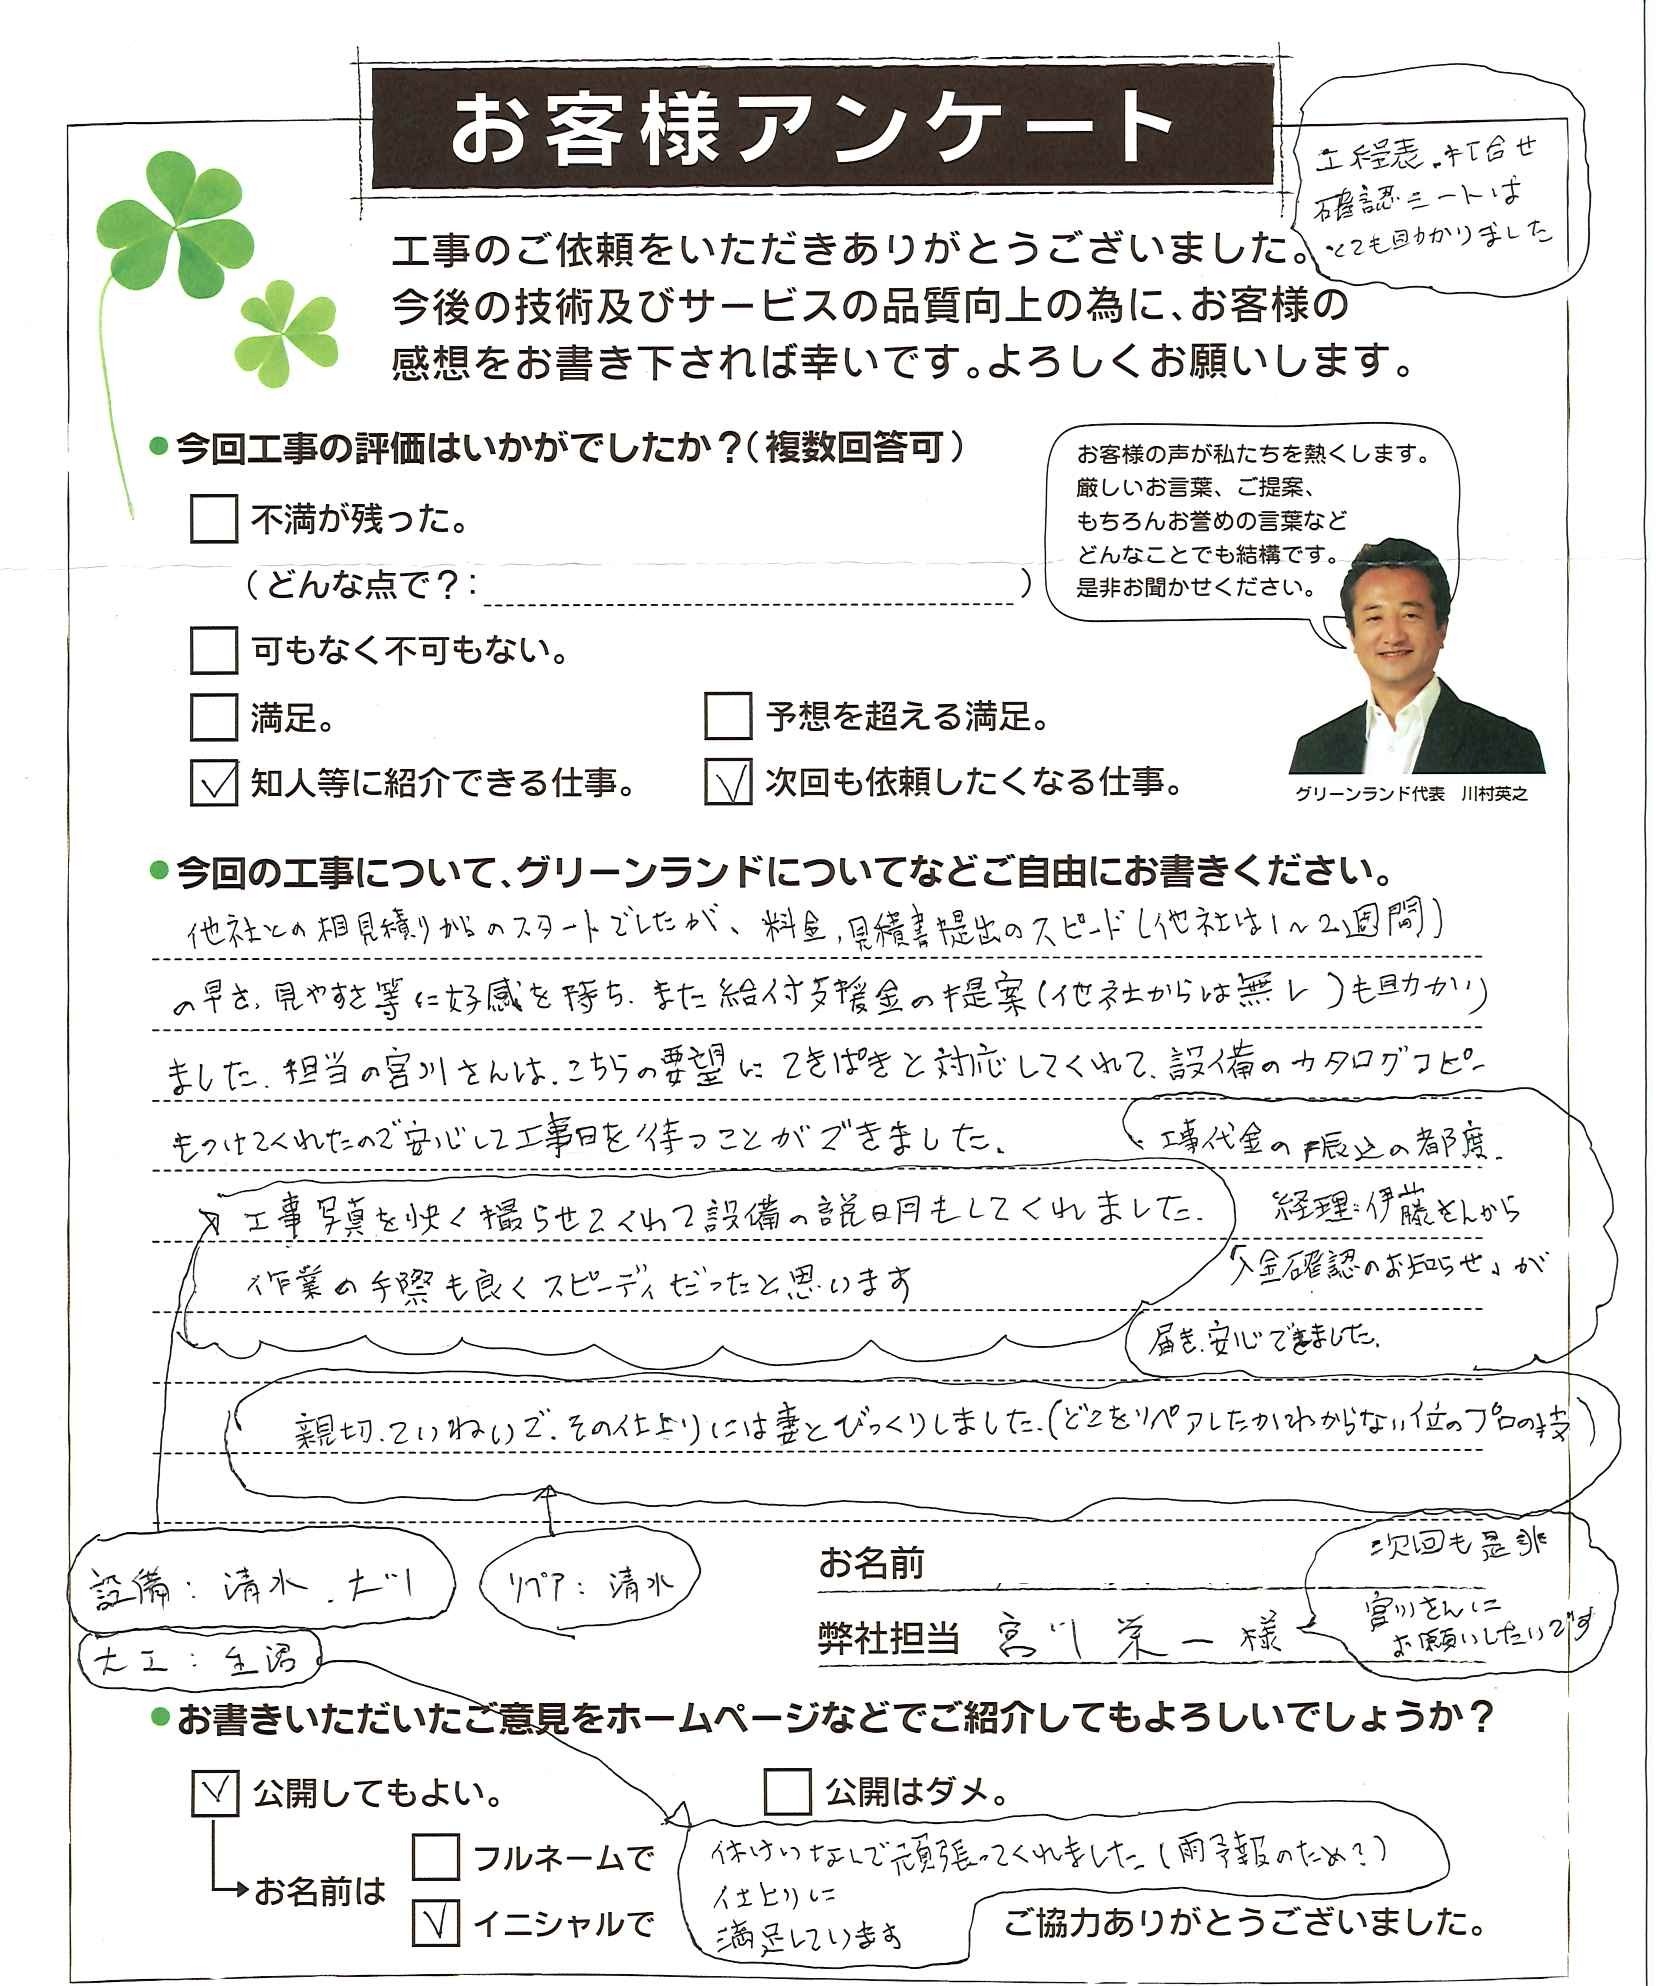 お客様アンケート
工程表、打合せ
確認シートは
とても助かりました
工事のご依頼をいただきありがとうございました。
今後の技術及びサービスの品質向上の為に、お客様の
感想をお書き下されば幸いです。よろしくお願いします。
●今回工事の評価はいかがでしたか？（複数回答可）
不満が残った。
（どんな点で？：　　　）
可もなく不可もない。
満足。
予想を超える満足。
知人等に紹介できる仕事。
次回も依頼したくなる仕事。
お客様の声が私たちを熱くします。
厳しいお言葉、ご提案、
もちろんお誉めの言葉など
どんなことでも結構です。
是非お聞かせください。
グリーンランド代表　川村英之
●今回の工事について、グリーンランドについてなどご自由にお書きください。
他社との相見積りからのスタートでしたが、料金、見積書提出のスピード（他社は1～2週間）
の早さ、見やすさ等に好感を持ち、また給付支援金の提案（他社からは無し）も助かり
ました。担当の宮川さんは、こちらの要望にてきぱきと対応してくれて、設備のカタログコピー
もつけてくれたので安心して工事日を待つことができました。
工事代金の振込の都度、
経理：伊藤さんから
「入金確認のお知らせ」が
届き、安心できました。
工事写真を快く撮らせてくれて設備の説明もしてくれました。
作業の手際も良くスピーディだったと思います
親切、ていねいで、その仕上りには妻とびっくりしました。（どこをリペアしたかわからない位のプロの技）
設備：清水、大川
リペア：清水
大工：生沼
お名前
弊社担当　宮川栄一様
次回も是非
宮川さんに
お願いしたいです
●お書きいただいたご意見をホームページなどでご紹介してもよろしいでしょうか？
公開してもよい。
公開はダメ。
お名前は
フルネームで
イニシャルで
休けいなしで頑張ってくれました（雨予報のため？）
仕上りに
満足しています
ご協力ありがとうございました。